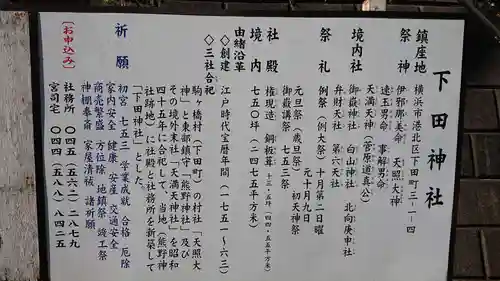 下田神社
鎮座地 横浜市港北区下田町三-一-四
祭神 伊邪那美命 天照大神
速玉男命 事解男命
天満天神(菅原道真公)
境内社 御嶽神社 白山神社 北向庚申社
弁財天社 第六天社
祭礼 例祭(例大祭) 十月第二日曜
元十月九日
元旦祭(歳旦祭) 初天神祭
御嶽講祭 七五三祭
社殿 権現造 銅板葺 十三・五坪(四四・五五平方米)
境内 七五〇坪(二四七五平方米)
由緒沿革
◇創建 江戸時代宝暦年間(一七五一~六三)
◇三社合祀
駒ヶ橋村(下田町)の村社「天照大
神」と東部鎮守「熊野神社」及び
その境外末社「天満天神社」を昭和
四十五年に合祀して、当地(熊野神
社跡地)に社殿と社務所を新築して
「下田神社」とした。
祈願
初宮 七五三 学業成就 合格 厄除
家内安全 健康 安産 交通安全
商売繁盛 方位除 地鎮祭 竣工祭
神棚奉斎 家屋清祓 諸祈願
〔お申込み〕
社務所 〇四五(五六一)二八七九
宮司宅 〇四四(五八八)八四二五